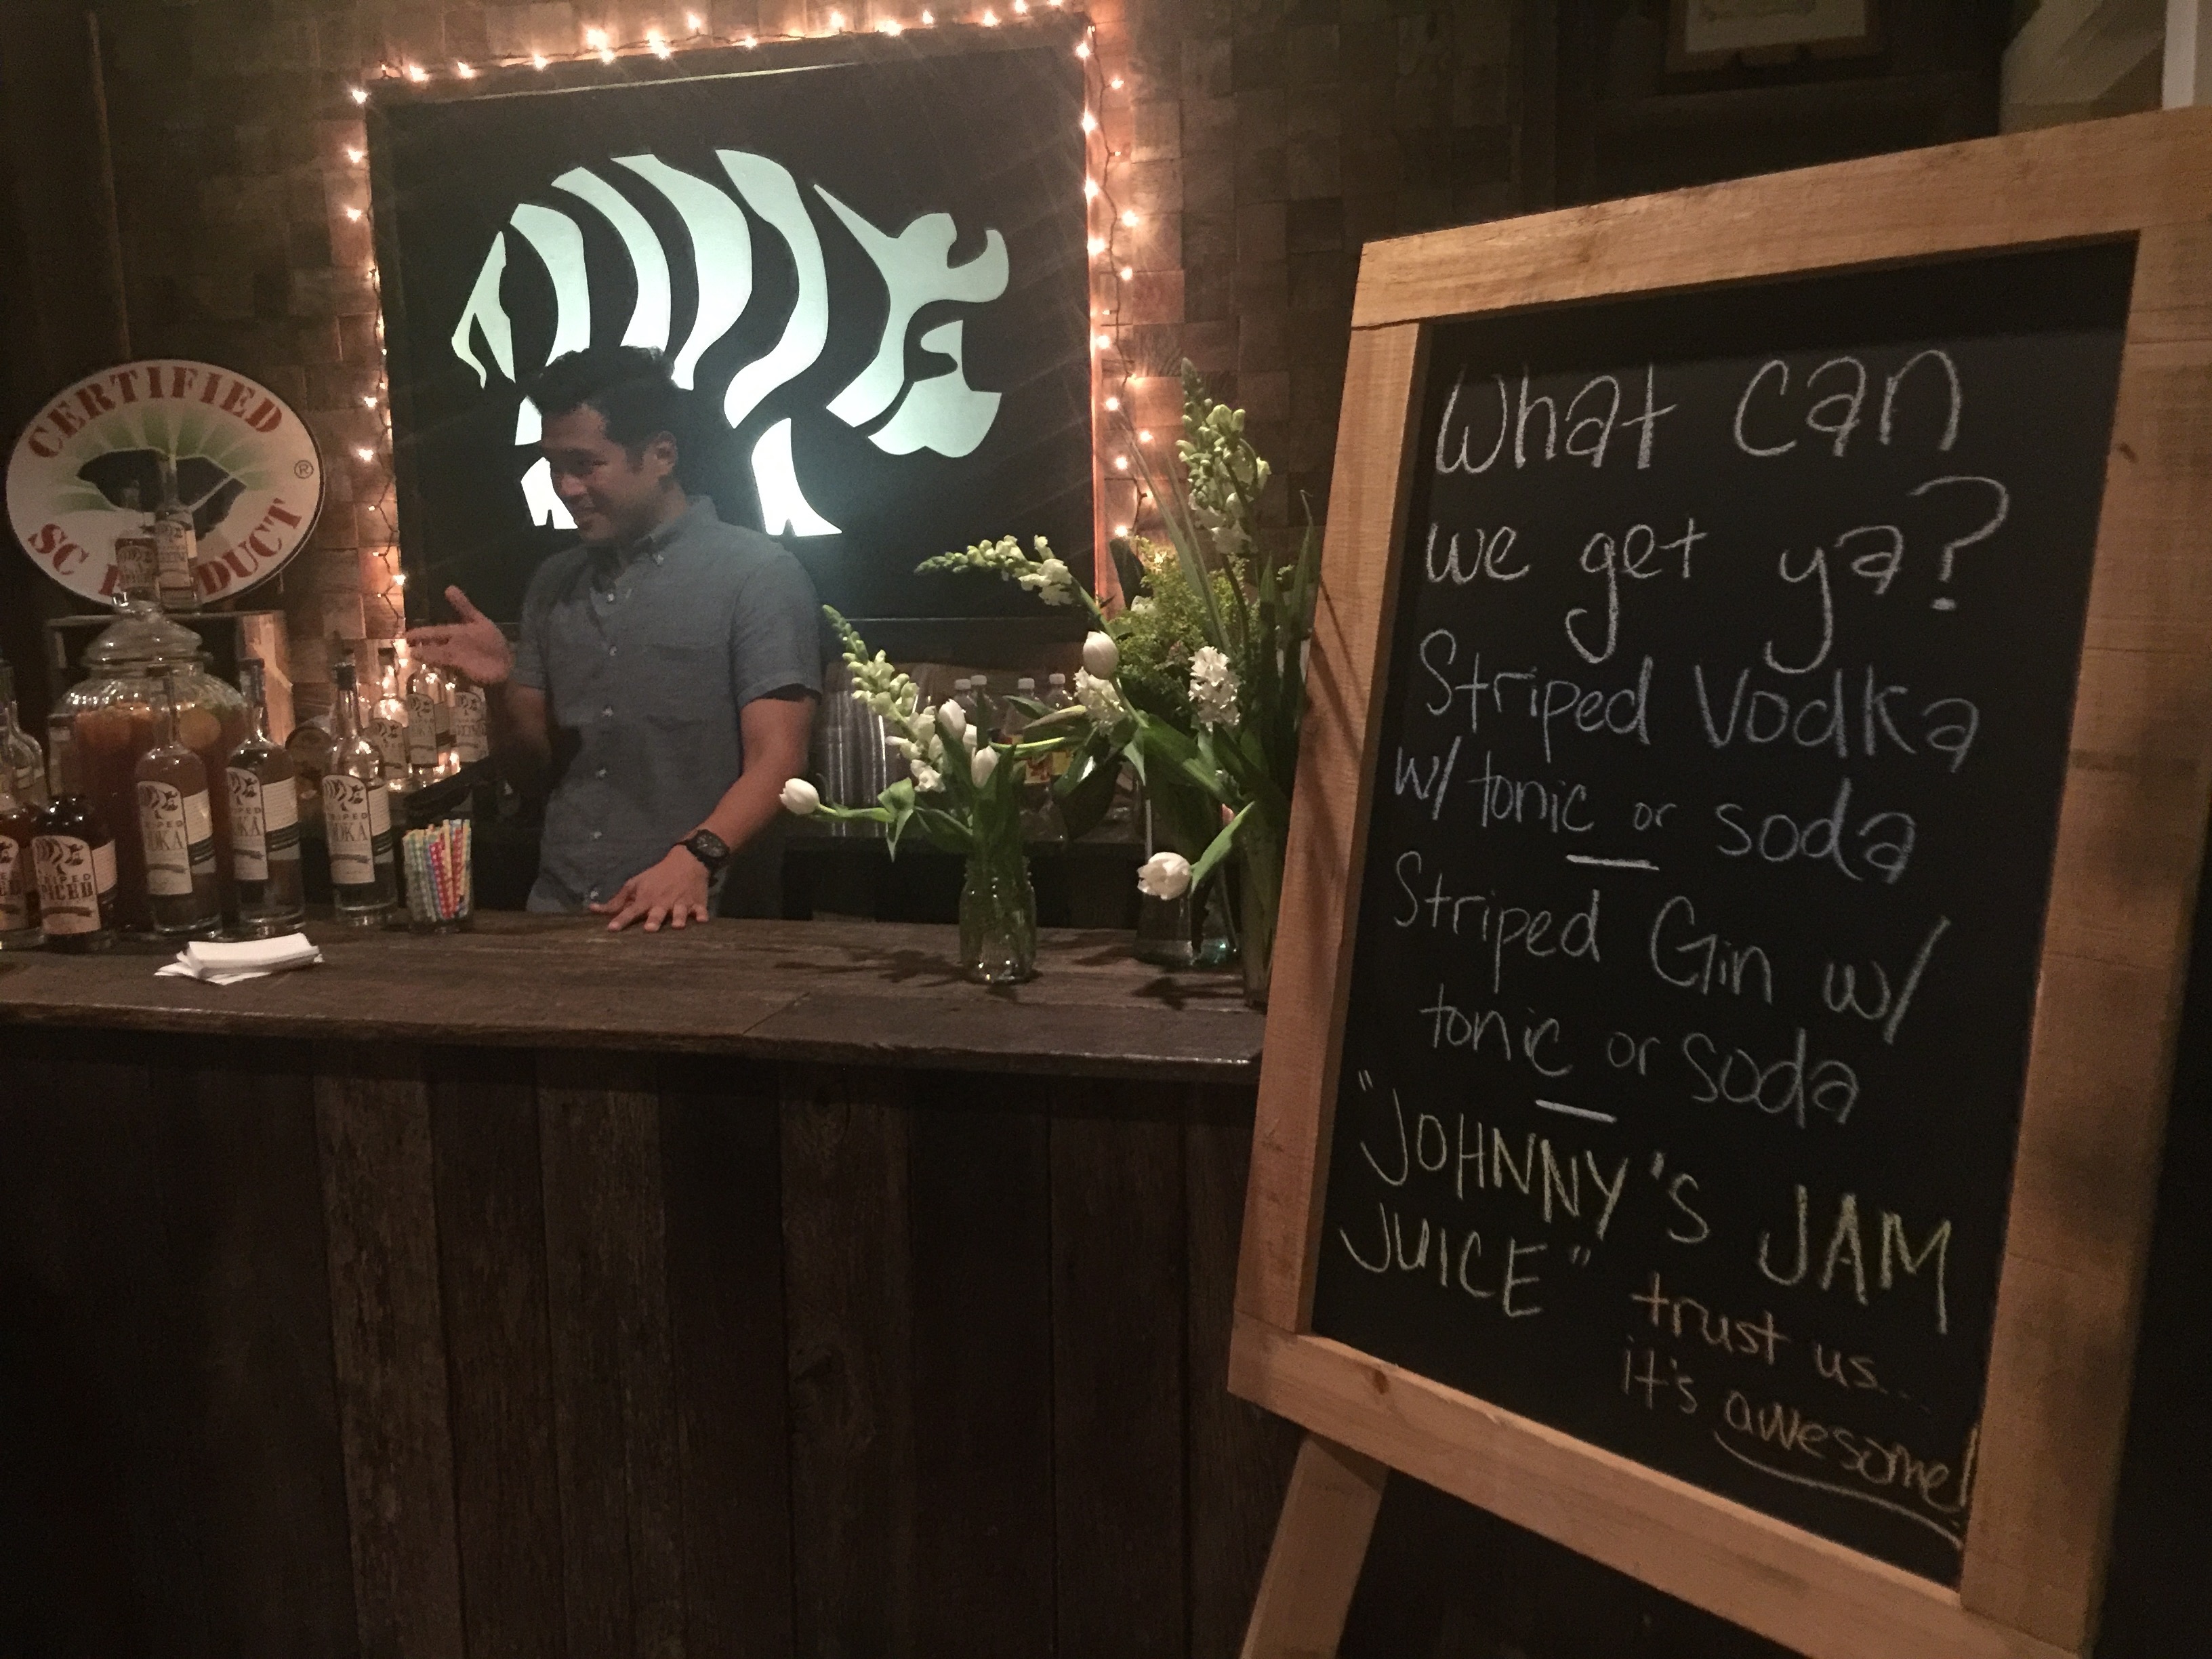 CERTIFIED
SC PRODUCT
®
What can
we get ya?
Striped Vodka
w/ tonic or soda
Striped Gin w/
tonic or soda
"JOHNNY'S JAM
JUICE" trust us...
it's awesome!
STRIPED
VODKA
STRIPED
VODKA
STRIPED
VODKA
STRIPED
SPICED